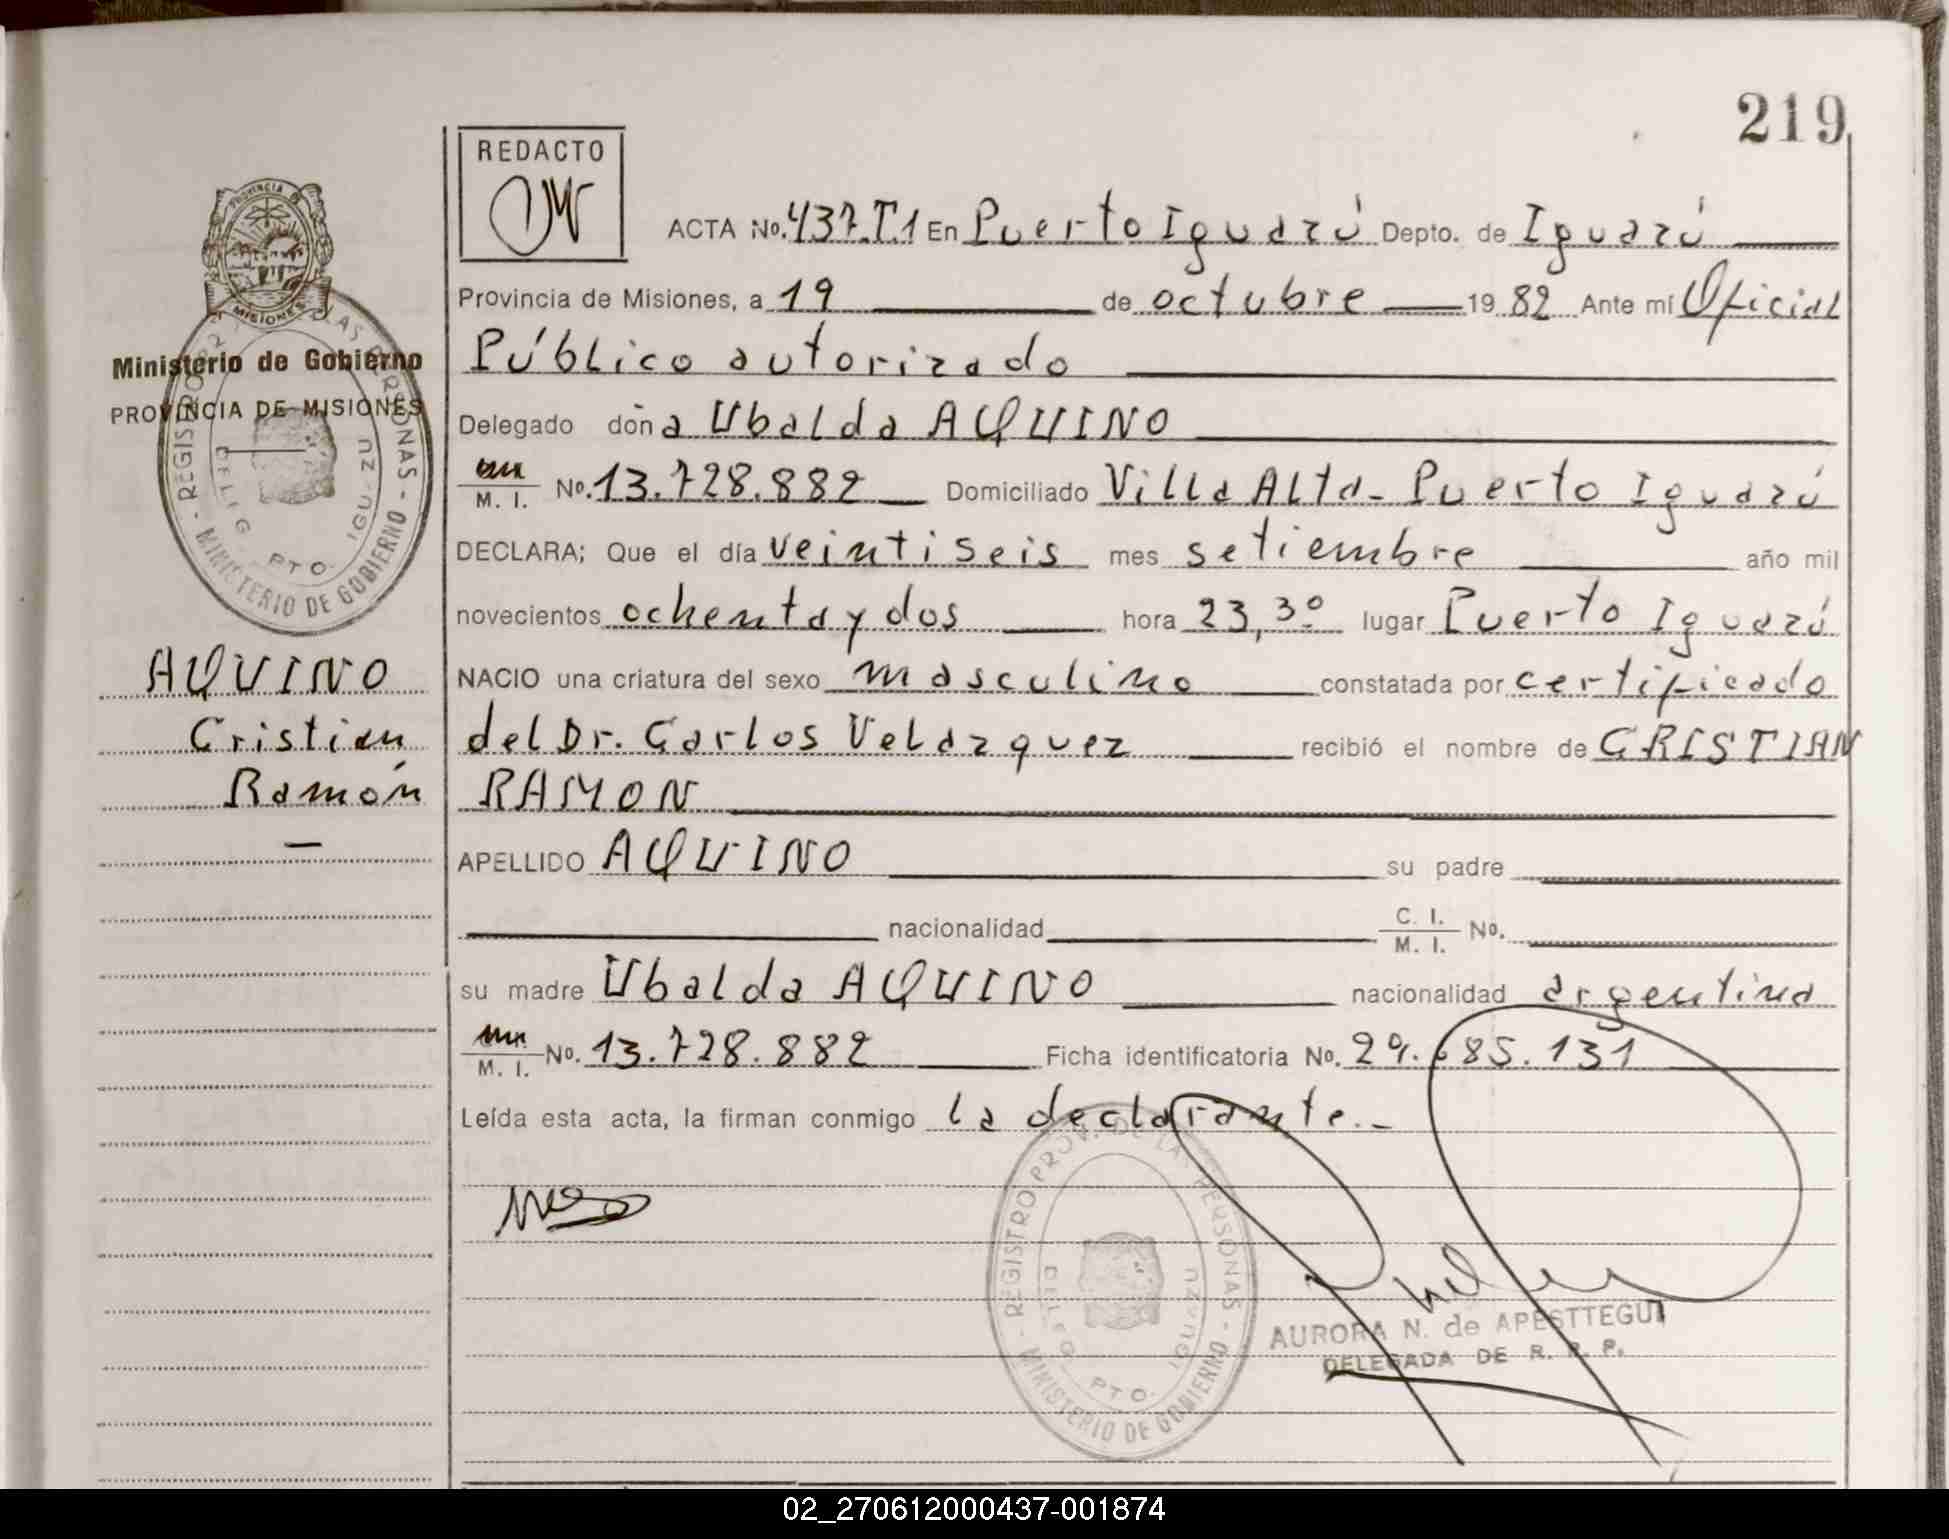 219
REDACTO
ACTA No. 437.T.1 En Puerto Iguazú Depto. de Iguazú
Provincia de Misiones, a 19 de octubre 1982 Ante mí Oficial
Público autorizado
Delegado doña Ubalda AQUINO
M. I. No. 13.728.882 Domiciliado Villa Alta- Puerto Iguazú
DECLARA; Que el día veintiseis mes setiembre año mil
novecientos ochenta y dos hora 23,30 lugar Puerto Iguazú
NACIO una criatura del sexo masculino constatada por certificado
del Dr. Carlos Velazquez recibió el nombre de CRISTIAN
RAMON
APELLIDO AQUINO su padre
nacionalidad C. I. M. I. No.
su madre Ubalda AQUINO nacionalidad argentina
M. I. No. 13.728.882 Ficha identificatoria No. 29.685.131
Leída esta acta, la firman conmigo la declarante.-
AURORA N. de APESTTEGUI
DELEGADA DE R. P. P.
REGISTRO PROV. DE LAS PERSONAS - MINISTERIO DE GOBIERNO -
DELEG. PTO. IGUAZU
PROVINCIA DE
MISIONES
Ministerio de Gobierno
PROVINCIA DE MISIONES
REGISTRO LAS PERSONAS - MINISTERIO DE GOBIERNO -
DELEG. PTO. IGUAZU
AQUINO
Cristian
Ramón
-
02_270612000437-001874